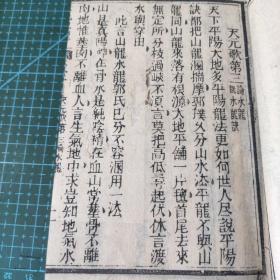 天元歌第三 論水龍
天下平陽大地多平陽龍法更如何世人尽說平陽
訣都把山龍揣摩郭璞又分山水法平龍不與山
龍同山龍來落有根源大地平鋪一片氈首尾去來
無定所分枝過峽不須言莫把高低尋起伏休言渡
水與穿田
此言山龍水龍郭氏已分不容溷用一法
山是真陽精在骨水是純陰精在血山常葬骨不離
肉地惟葬肉不離血人言生氣地中求豈知地氣水